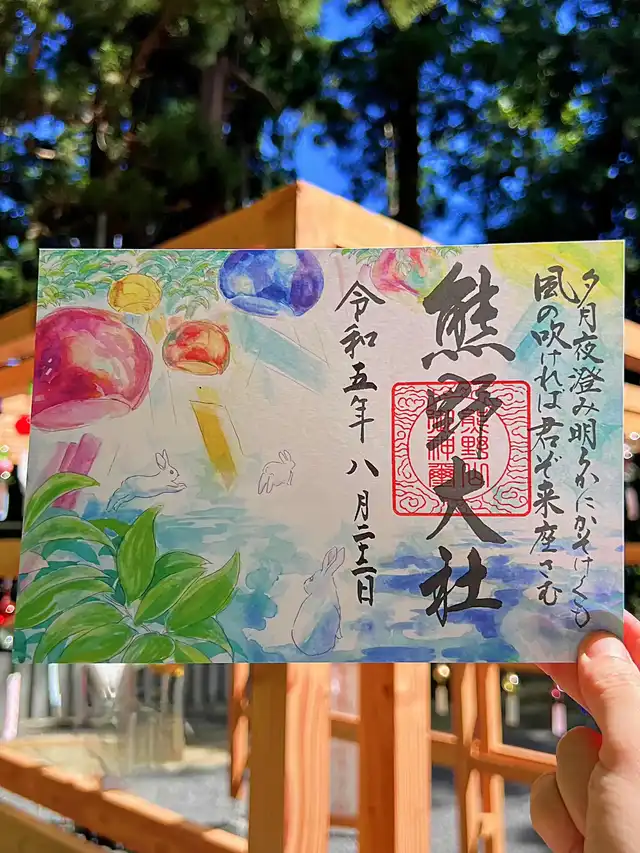 夕月夜澄み明らかにかそけくも
風の吹けれは君ぞ来座さむ
熊野大社
令和五年 八月